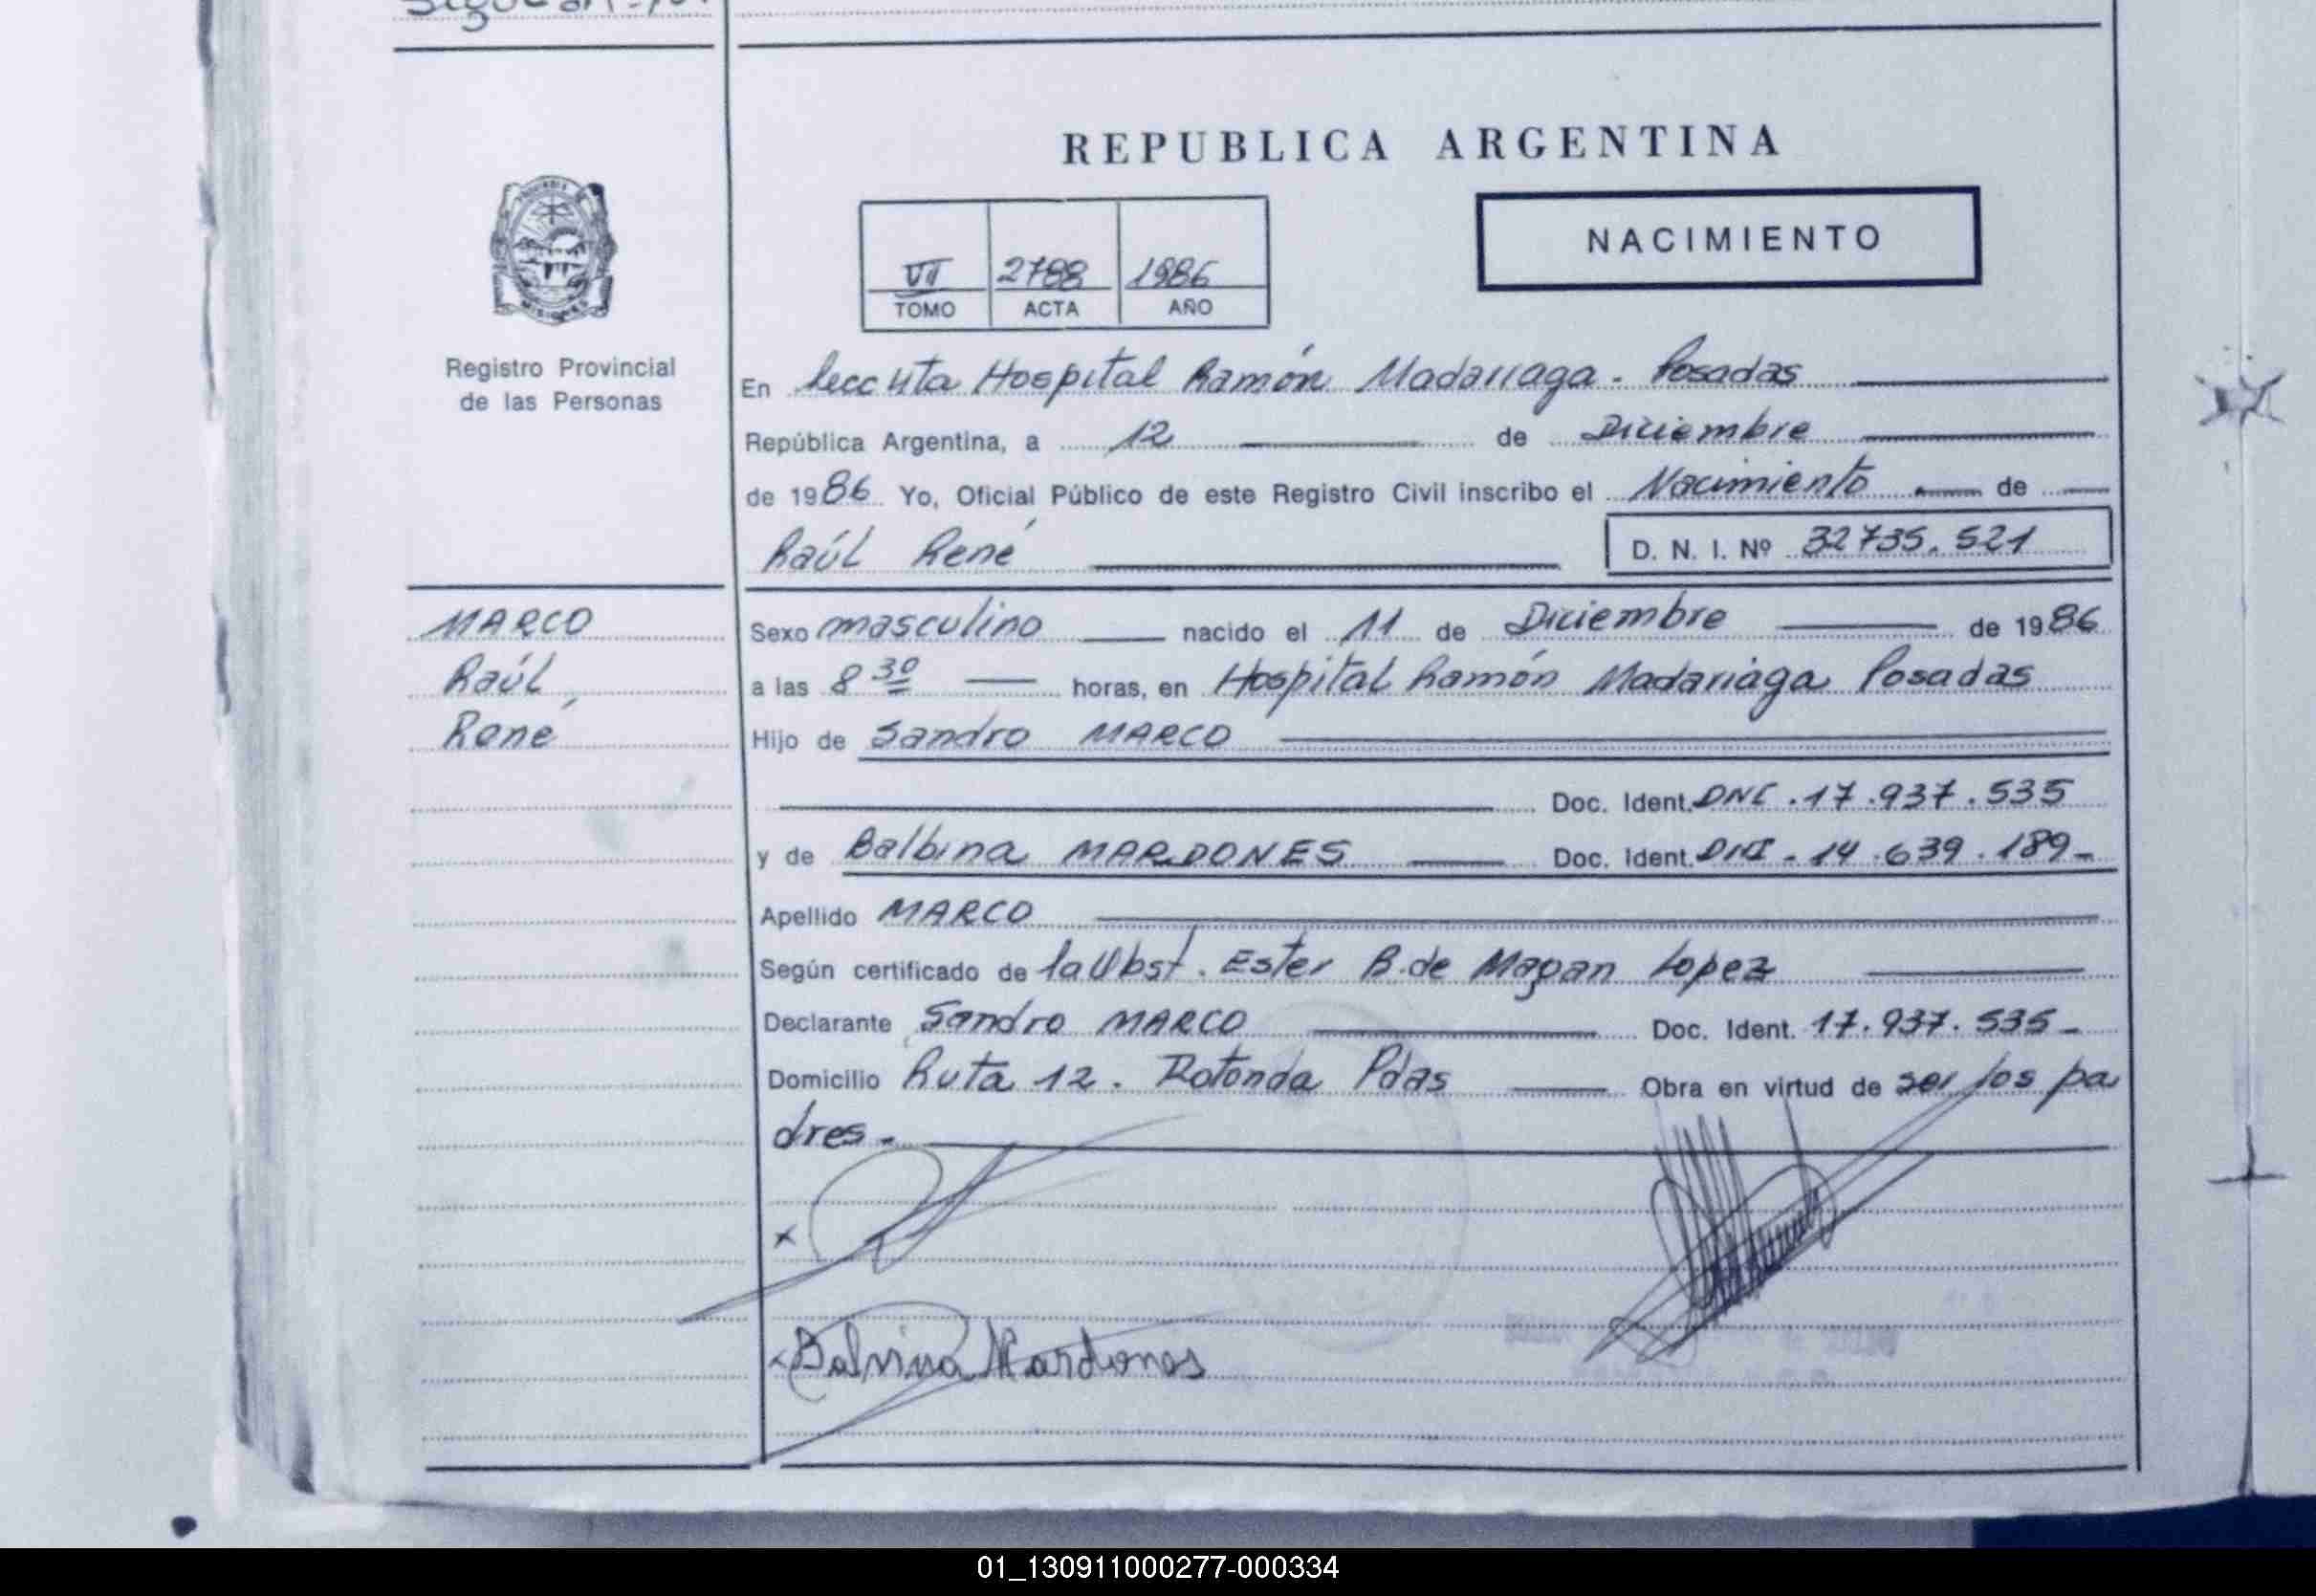 REPUBLICA ARGENTINA
NACIMIENTO
VII 2788 1986
TOMO ACTA AÑO
Registro Provincial
de las Personas
En Secc 4ta Hospital Ramón Madariaga - Posadas
República Argentina, a 12 de Diciembre
de 1986 Yo, Oficial Público de este Registro Civil inscribo el Nacimiento de
Raúl René D. N. I. Nº 32735.521
MARCO
Raúl
René
Sexo masculino nacido el 11 de Diciembre de 1986
a las 8 30 horas, en Hospital Ramón Madariaga Posadas
Hijo de Sandro MARCO
Doc. Ident. DNI. 17.937.535
y de Balbina MARDONES Doc. Ident. DNI - 14.639.189-
Apellido MARCO
Según certificado de la Obst. Ester B. de Magan Lopez
Declarante Sandro MARCO Doc. Ident. 17.937.535-
Domicilio Ruta 12. Rotonda Pdas Obra en virtud de ser los pa
dres-
x
x Balvina Mardones
01_130911000277-000334